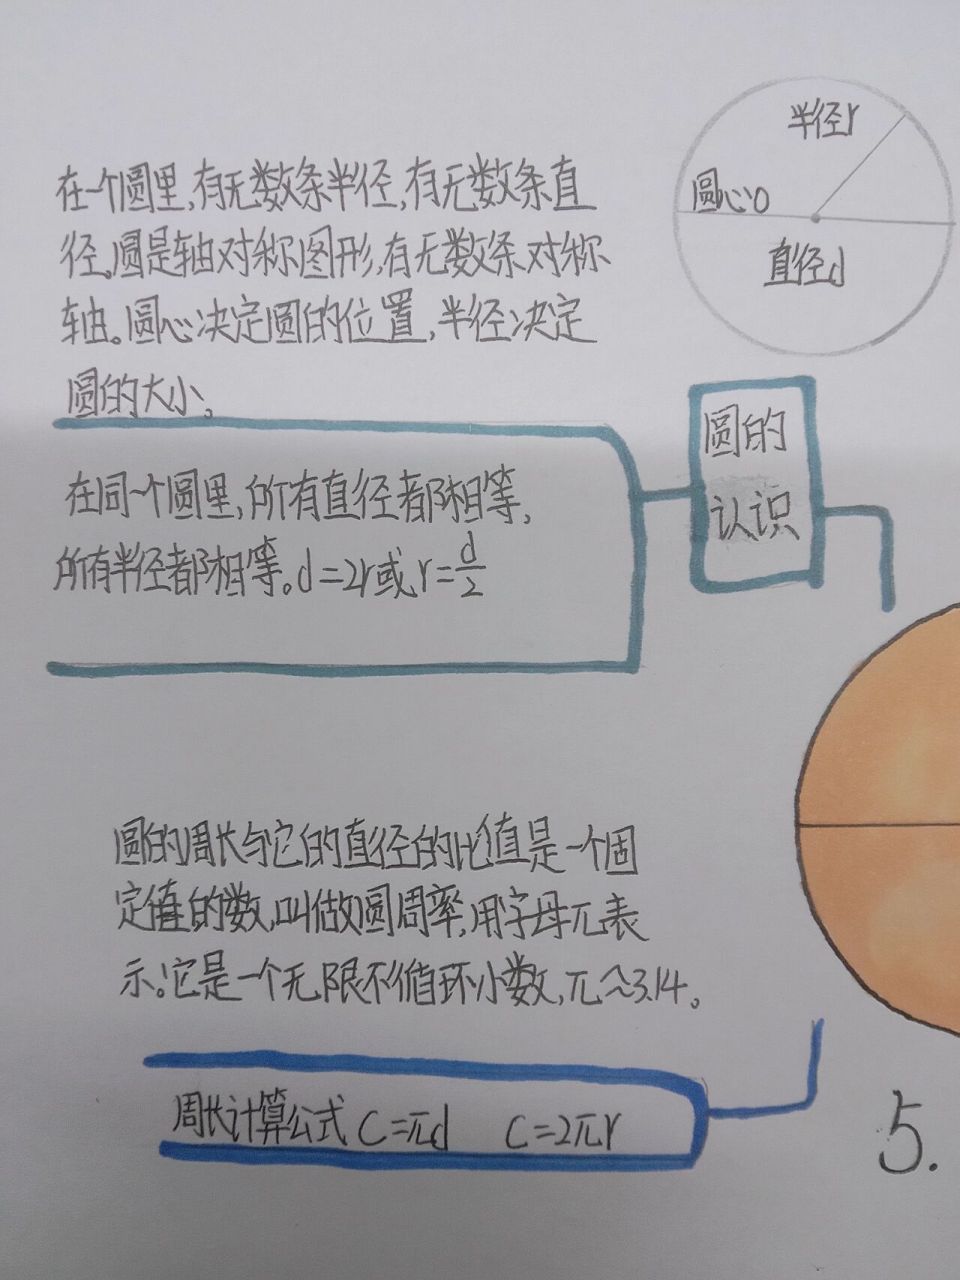 半径r
圆心o
直径d
在一个圆里,有无数条半径,有无数条直
径。圆是轴对称图形,有无数条对称
轴。圆心决定圆的位置,半径决定
圆的大小。
圆的
认识
在同一个圆里,所有直径都相等,
所有半径都相等。d=2r或r=d/2
圆的周长与它的直径的比值是一个固
定值的数,叫做圆周率,用字母π表
示。它是一个无限不循环小数,π≈3.14。
周长计算公式 C=πd C=2πr
5.